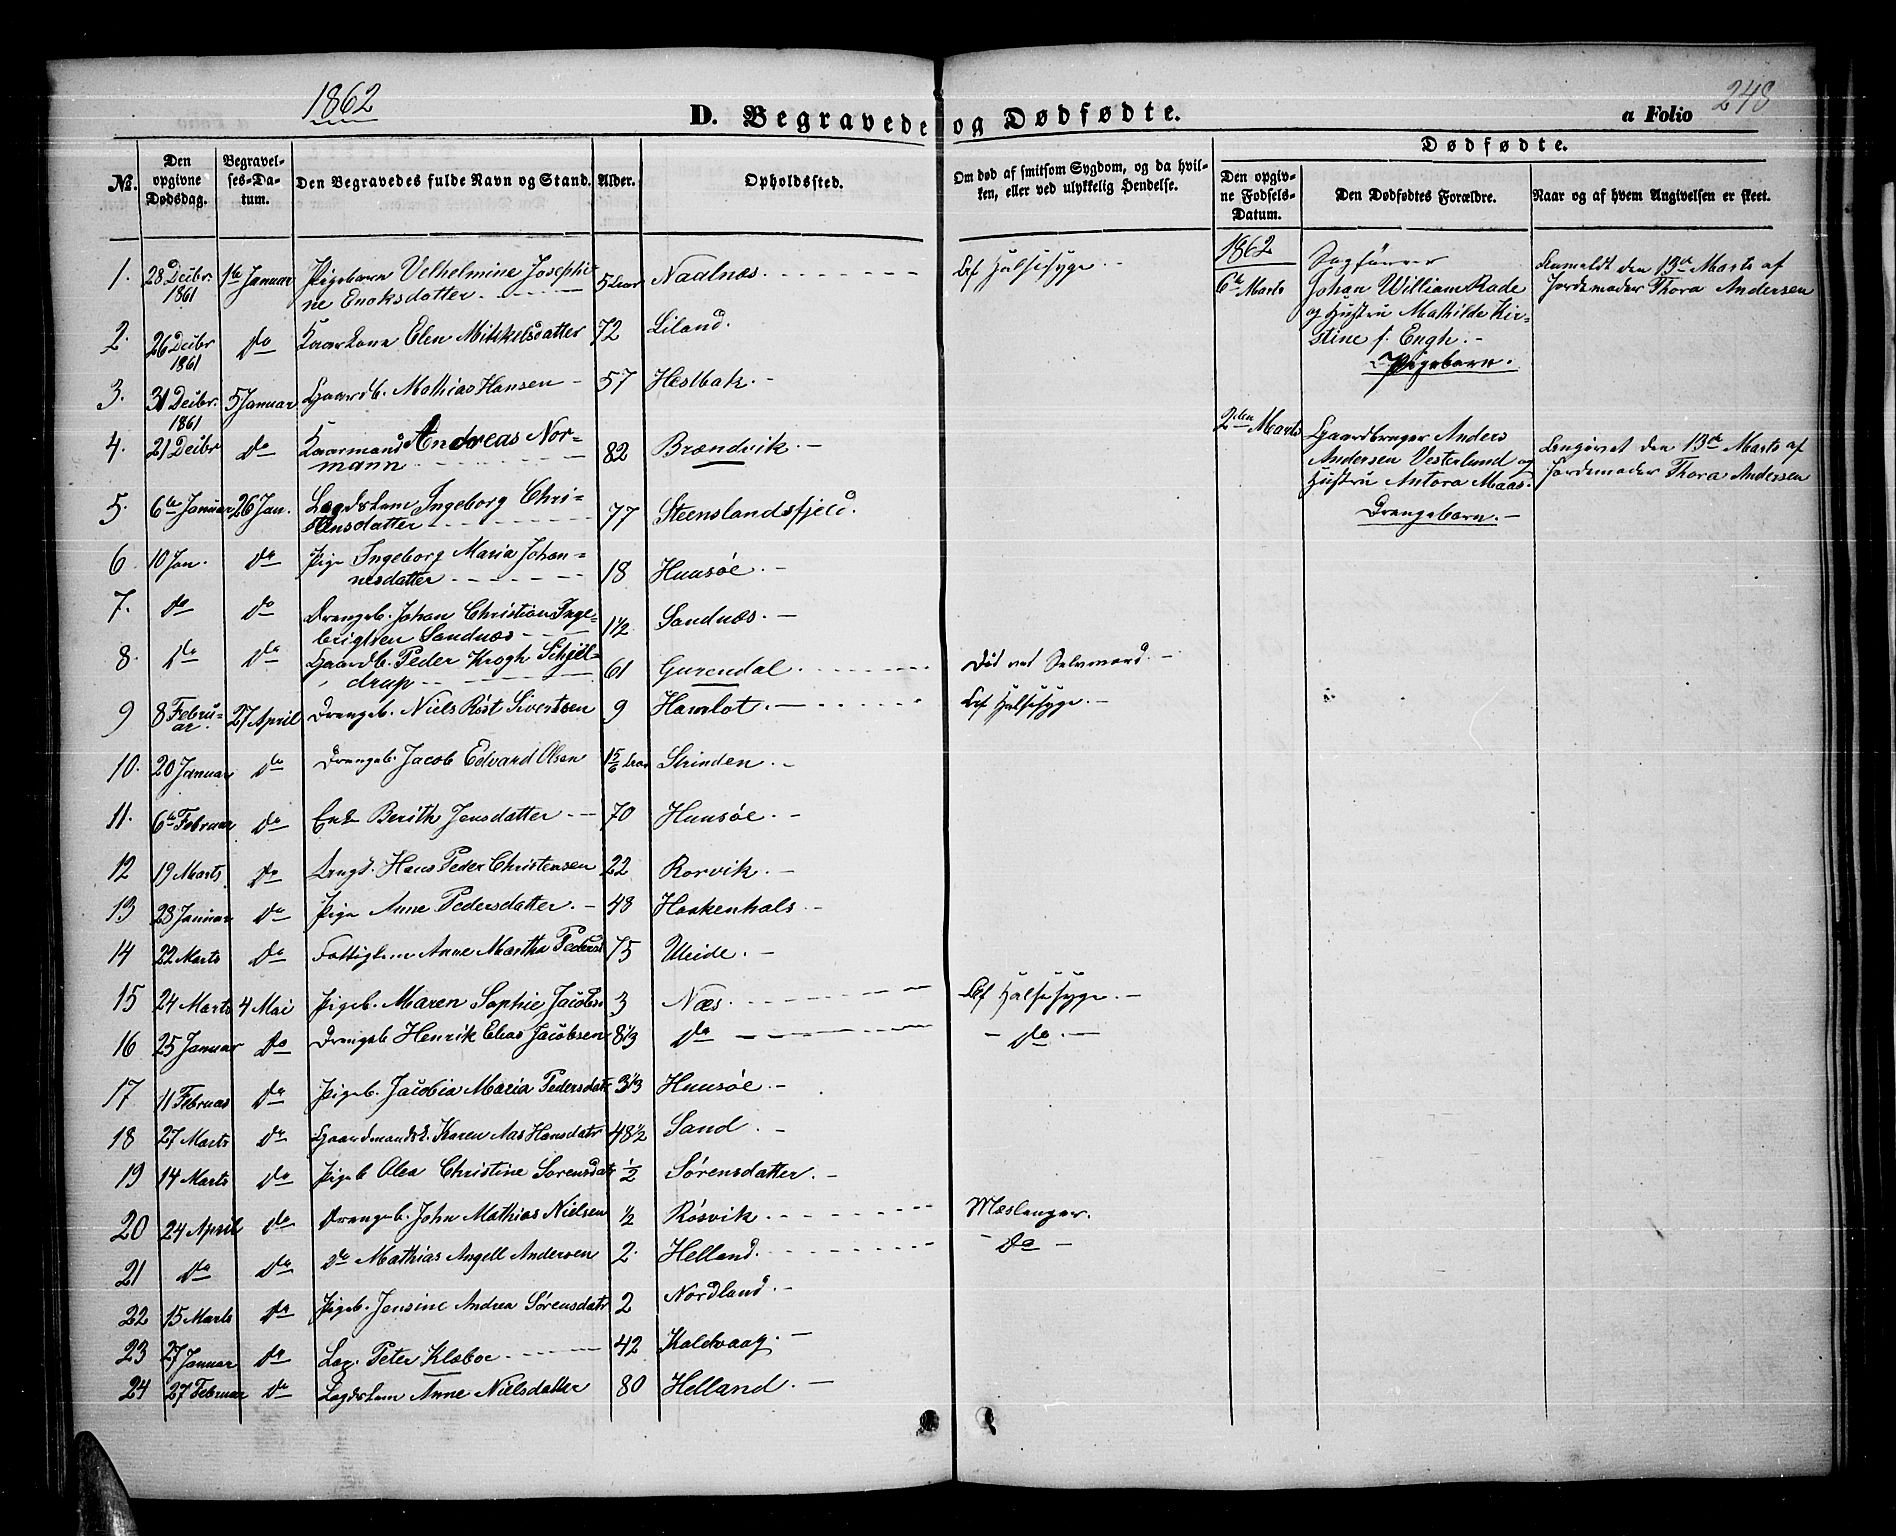 1862
D. Begravede og Dødfødte.
a Folio 248
No.
Den opgivne Dødsdag.
Begravelses-Datum.
Den Begravedes fulde Navn og Stand.
Alder.
Opholdssted.
Om død af smitsom Sygdom, og da hvilken, eller ved ulykkelig Hendelse.
Dødfødte.
Den opgivne Fødsels-Datum.
Den Dødfødtes Forældre.
Naar og af hvem Angivelsen er skeet.
1. 28 Decbr. 1861 1te Januar Pigebarn Velhelmine Josephine Enoksdatter. 5 Naalnæs. Halsesyge
2. 26 Decbr 1861 Do Kaarkone Elen Mikkelsdatter 72 Liland.
3. 31 Decbr. 1861 5 Januar Gaardb. Mathias Hansen 57 Hestbak.
4. 21 Decbr Do Kaarmand Andreas Normann 82 Brændvik
5. 6te Januar 26 Jan. Ingeborg Christensdatter 77 Steenslandsfjeld.
6 10 Jan. Do Pige Ingeborg Maria Johannesdatter 18 Huusøe.
7. Do Do Drengeb. Johan Christian Ingebrigtsen Sandnæs 1½ Sandnæs.
8. Do Do Gaardb. Peder Krogh Schjeldrup 61 Gurendal Død ved Selvmord.
9 8 Februar. 27 April Drengeb. Niels Røst Sivertsen 9 Hamlot. Halsesyge.
10. 20 Januar Do Drengeb. Jacob Edvard Olsen 1 5/6 Strinden.
11. 6te Februar Do Enke Berith Jensdatter 70 Huusøe.
12 19 Marts Do Hans Peder Christensen 22 Rorvik.
13 28 Januar Do Pige Anne Pedersdatter. 48 Haakenhals
14 22 Marts Do Anne Martha Pedersd 75 Uleide.
15 24 Marts 4 Mai Pigeb. Maren Sophie Jacobs 3 Næs. Halsesyge.
16 25 Januar Do Drengeb Henrik Elias Jacobsen 8⅓ Do Do.
17 11 Februar Do Pigeb. Jacobia Maria Pedersdatr 3⅓ Huusøe
18 27 Marts Do Gaardmandsk. Karen Aas Hansdatr 48½ Sand
19 14 Marts Do Pigeb Olea Christine Sørensdatr ½ Sørensdatter
20 24 April Do Drengeb. John Mathias Nielsen ½ Røsvik. Mæslenger.
21 Do Do Do Mathias Angell Andersen 2. Helland. Do
22 15 Marts Do Pigeb. Jensine Andrea Sørensdatr 2 Nordland.
23 27 Januar Do Peter Klæboe 42 Kaldvaag.
24 27 Februar Do Anne Nielsdatter 80 Helland.
1862
6te Marts
Sagfører
Johan William Rode
og Hustru Mathilde Kirstine f. Engh.
Pigebarn.
Anmeldt den 13de Marts af
Jordemoder Thora Andersen
2den Marts
Gaardbruger Anders
Andersen Vesterlund og
Hustru Antora Maas.
Drengebarn.
Angivet den 13de Marts af
Jordemoder Thora Andersen